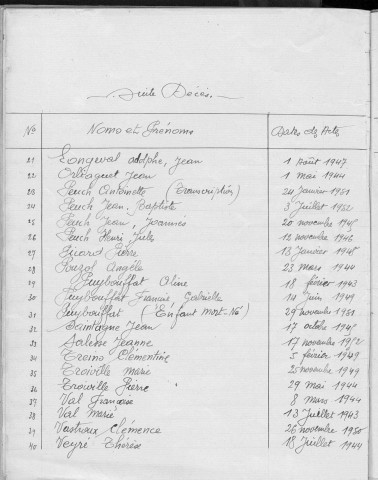 Suite Décès.
No Noms et Prénoms Dates des Actes
21 Longeval Adolphe, Jean 1 Août 1947
22 Orléaguet Jean 1 mai 1944
23 Peuch Antoinette (Transcription) 24 Janvier 1951
24 Peuch Jean, Baptiste 3 Juillet 1952
25 Peuch Jean, Joannès 20 novembre 1945
26 Peuch Henri, Jules 12 novembre 1946
27 Picard Pierre 13 Janvier 1945
28 Pouzol Angèle 23 mars 1944
29 Puybouffat Aline 18 février 1943
30 Puybouffat Francine, Gabrielle 14 Juin 1949
31 Puybouffat (Enfant Mort-Né) 29 novembre 1951
32 Saintagne Jean 17 octobre 1945
33 Salesse Jeanne 17 novembre 1952
34 Troins Clémentine 5 février 1949
35 Troiville Marie 25 novembre 1949
36 Troiville Pierre 29 mai 1944
37 Val Françoise 8 mars 1944
38 Val Marie 13 Juillet 1943
39 Vastroux Clémence 26 novembre 1950
40 Veyré Thérèse 18 Juillet 1944